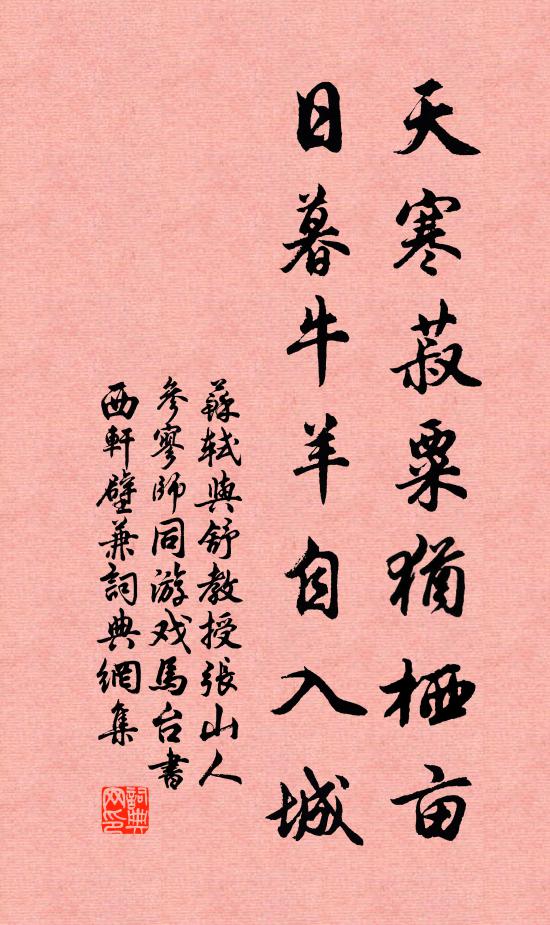 天寒菽粟猶栖亩
日暮牛羊自入城
蘇轼與舒教授張山人
参寥師同游戏馬台書
西軒壁兼詞典網集
詞典
网印